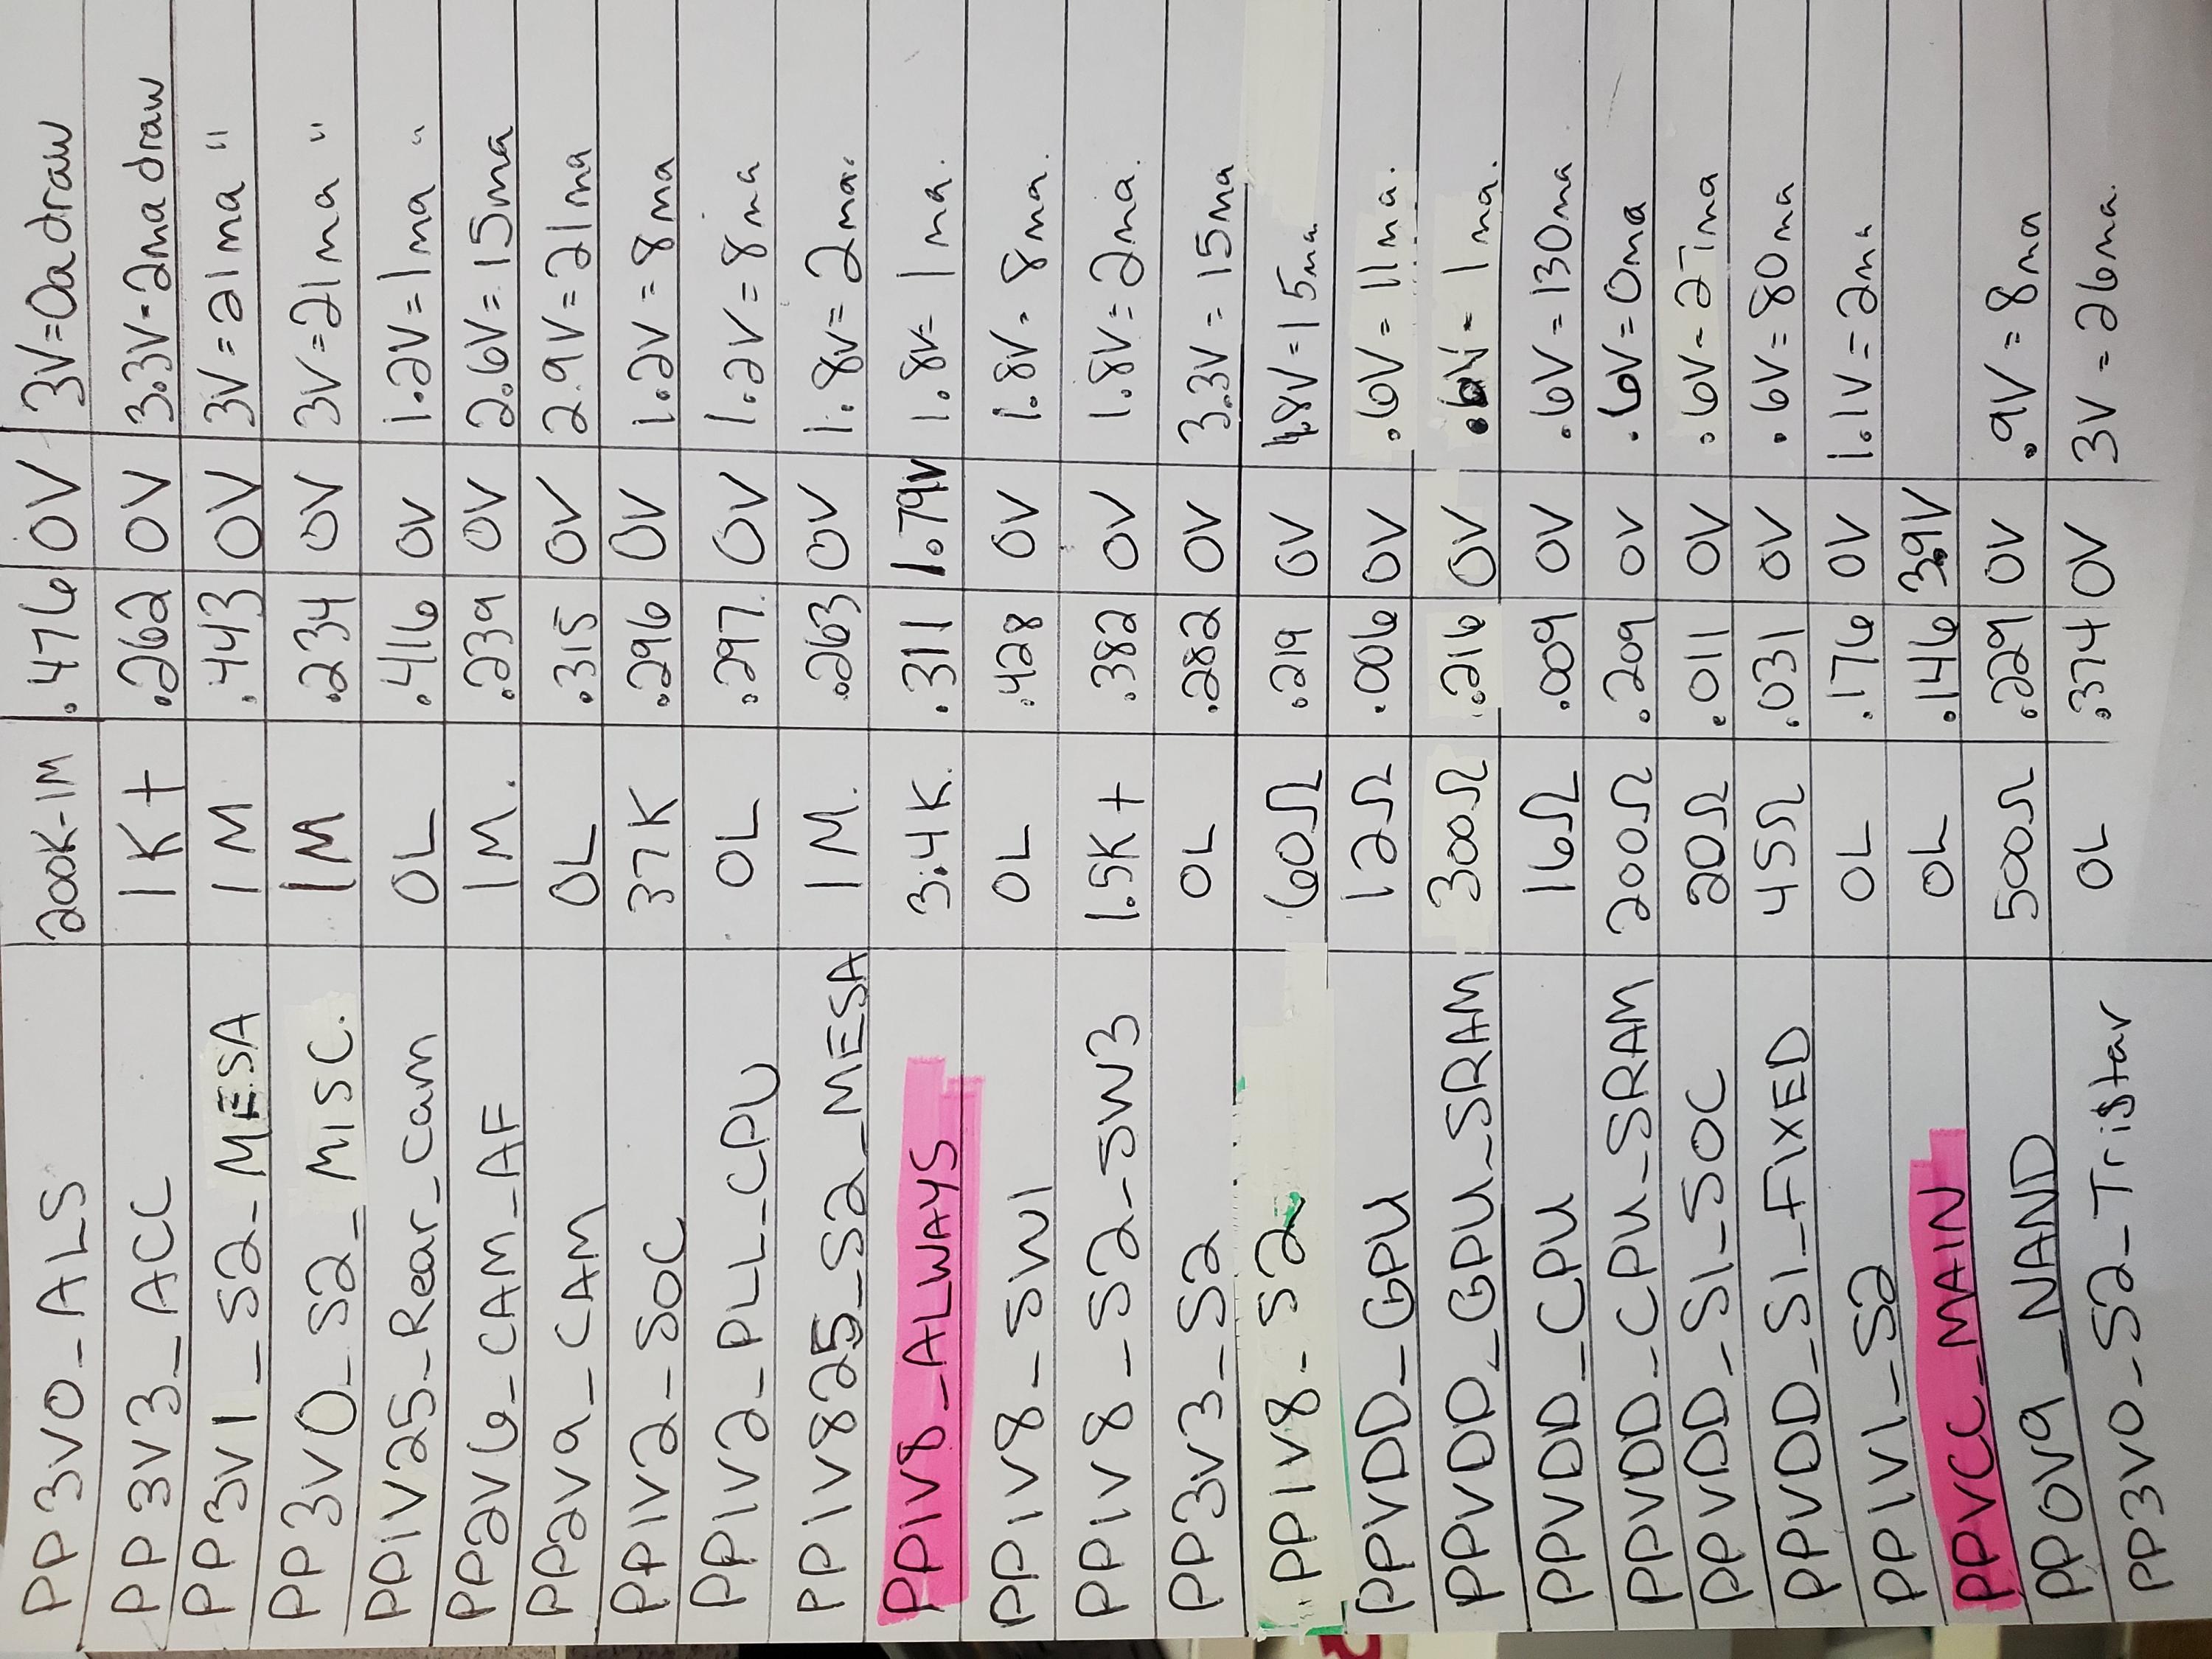 PP3V0_ALS 200K-1M .476 0V 3V=0a draw
PP3V3_ACC 1K+ .262 0V 3.3V=2ma draw
PP3V1_S2_MESA 1M .443 0V 3V=21ma "
PP3V0_S2_MISC. 1M .234 0V 3V=21ma "
PP1V25_Rear_Cam OL .416 0V 1.2V=1ma "
PP2V6_CAM_AF 1M. .239 0V 2.6V=15ma
PP2V9_CAM OL .315 0V 2.9V=21ma
PP1V2_SOC 37K .296 0V 1.2V=8ma
PP1V2_PLL_CPU OL .297 0V 1.2V=8ma
PP1V825_S2_MESA 1M. .263 0V 1.8V=2ma.
PP1V8_ALWAYS 3.4K. .311 1.79V 1.8V= 1ma.
PP1V8_SW1 OL .428 0V 1.8V= 8ma.
PP1V8_S2_SW3 1.5K+ .382 0V 1.8V=2ma.
PP3V3_S2 OL .282 0V 3.3V=15ma
PP1V8_S2 60Ω .219 0V 1.8V=15ma
PPVDD_GPU 12Ω .006 0V .6V=11ma.
PPVDD_GPU_SRAM 300Ω .216 0V .6V= 1ma.
PPVDD_CPU 16Ω .009 0V .6V=130ma
PPVDD_CPU_SRAM 200Ω .209 0V .6V=0ma
PPVDD_S1_SOC 20Ω .011 0V .6V= ma
PPVDD_S1_FIXED 45Ω .031 0V .6V=80ma
PP1V1_S2 OL .176 0V 1.1V=2ma
PPVCC_MAIN OL .146 3.9V
PP0V9_NAND 500Ω .229 0V .9V=8ma
PP3V0_S2_Tristar OL .374 0V 3V=26ma.